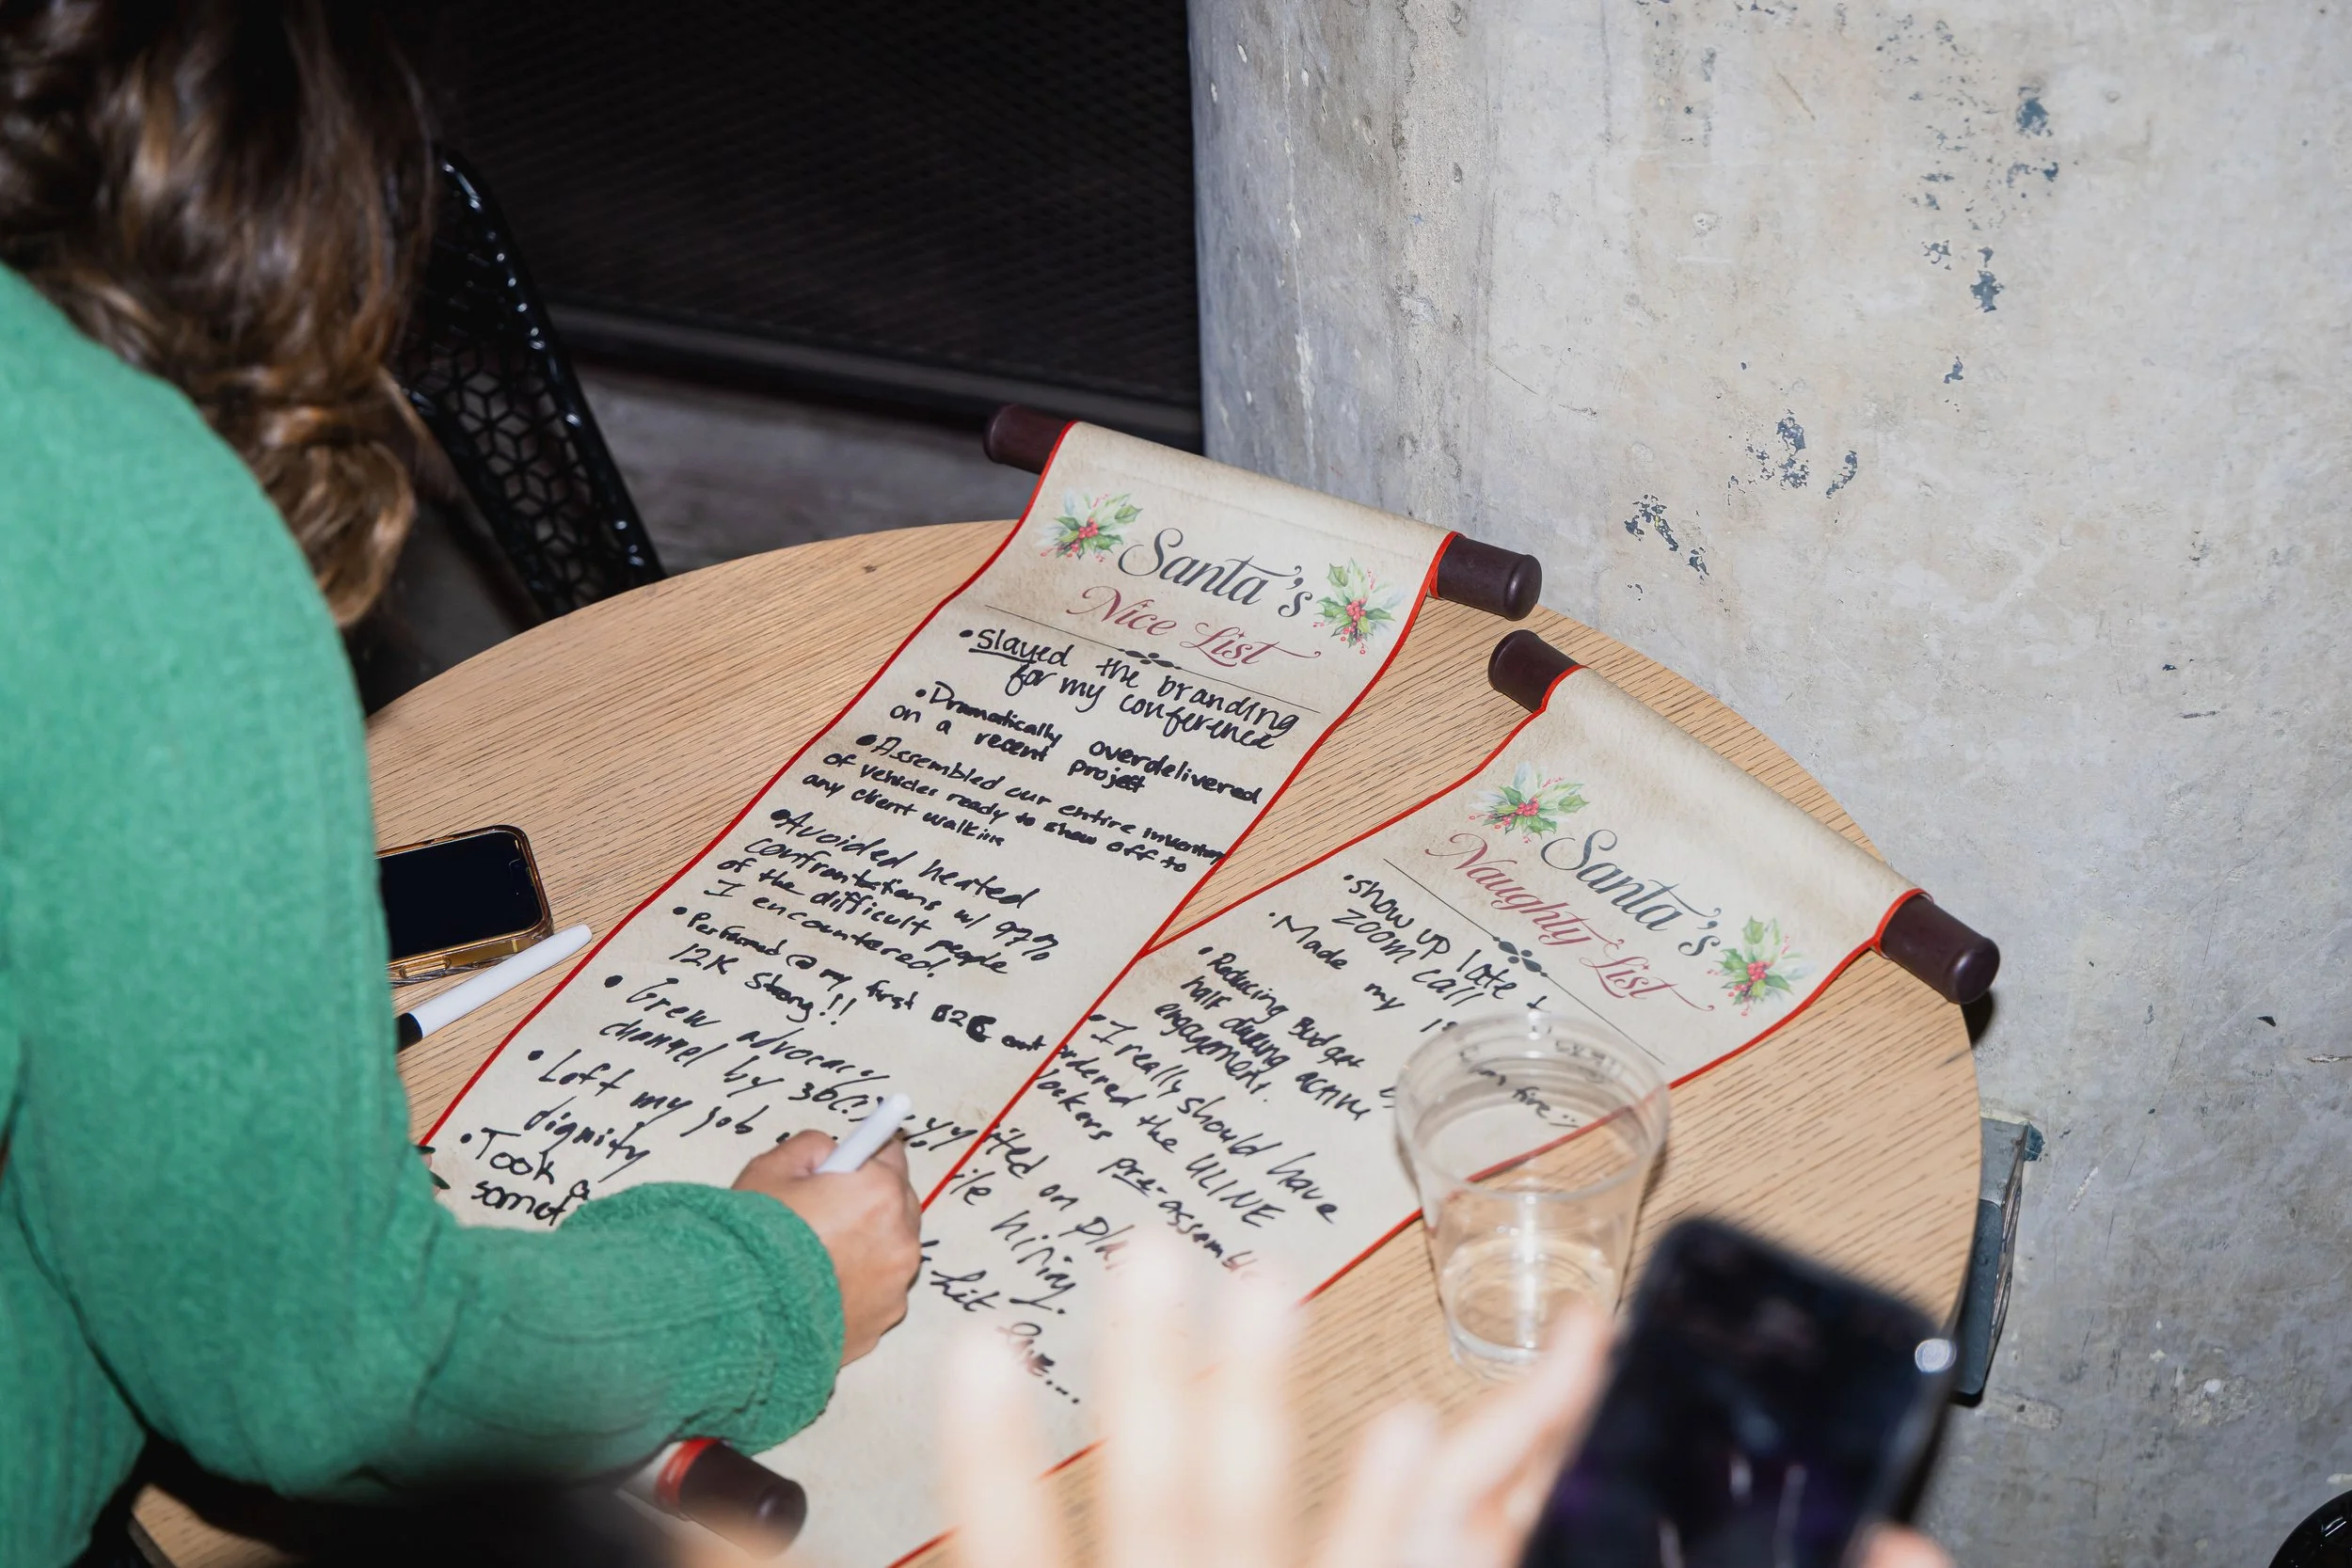 Santa's
Nice List
• Slayed the branding
for my conference
• Dramatically overdelivered
on a recent project
• Assembled our entire inventory
of vehicles ready to show off to
any client walkin
• Avoided heated
confrontations w/ 97%
of the difficult people
I encountered.
• Performed @ my first B2B
12K Strong!!
• Grew advocacy
channel by
• Left my job
dignity
• Took a
Santa's
Naughty List
• show up late
zoom call
• Made my
• Reducing Budget
half during active
engagement.
• I really should have
ordered the ULINE
pre-
on
hiring.